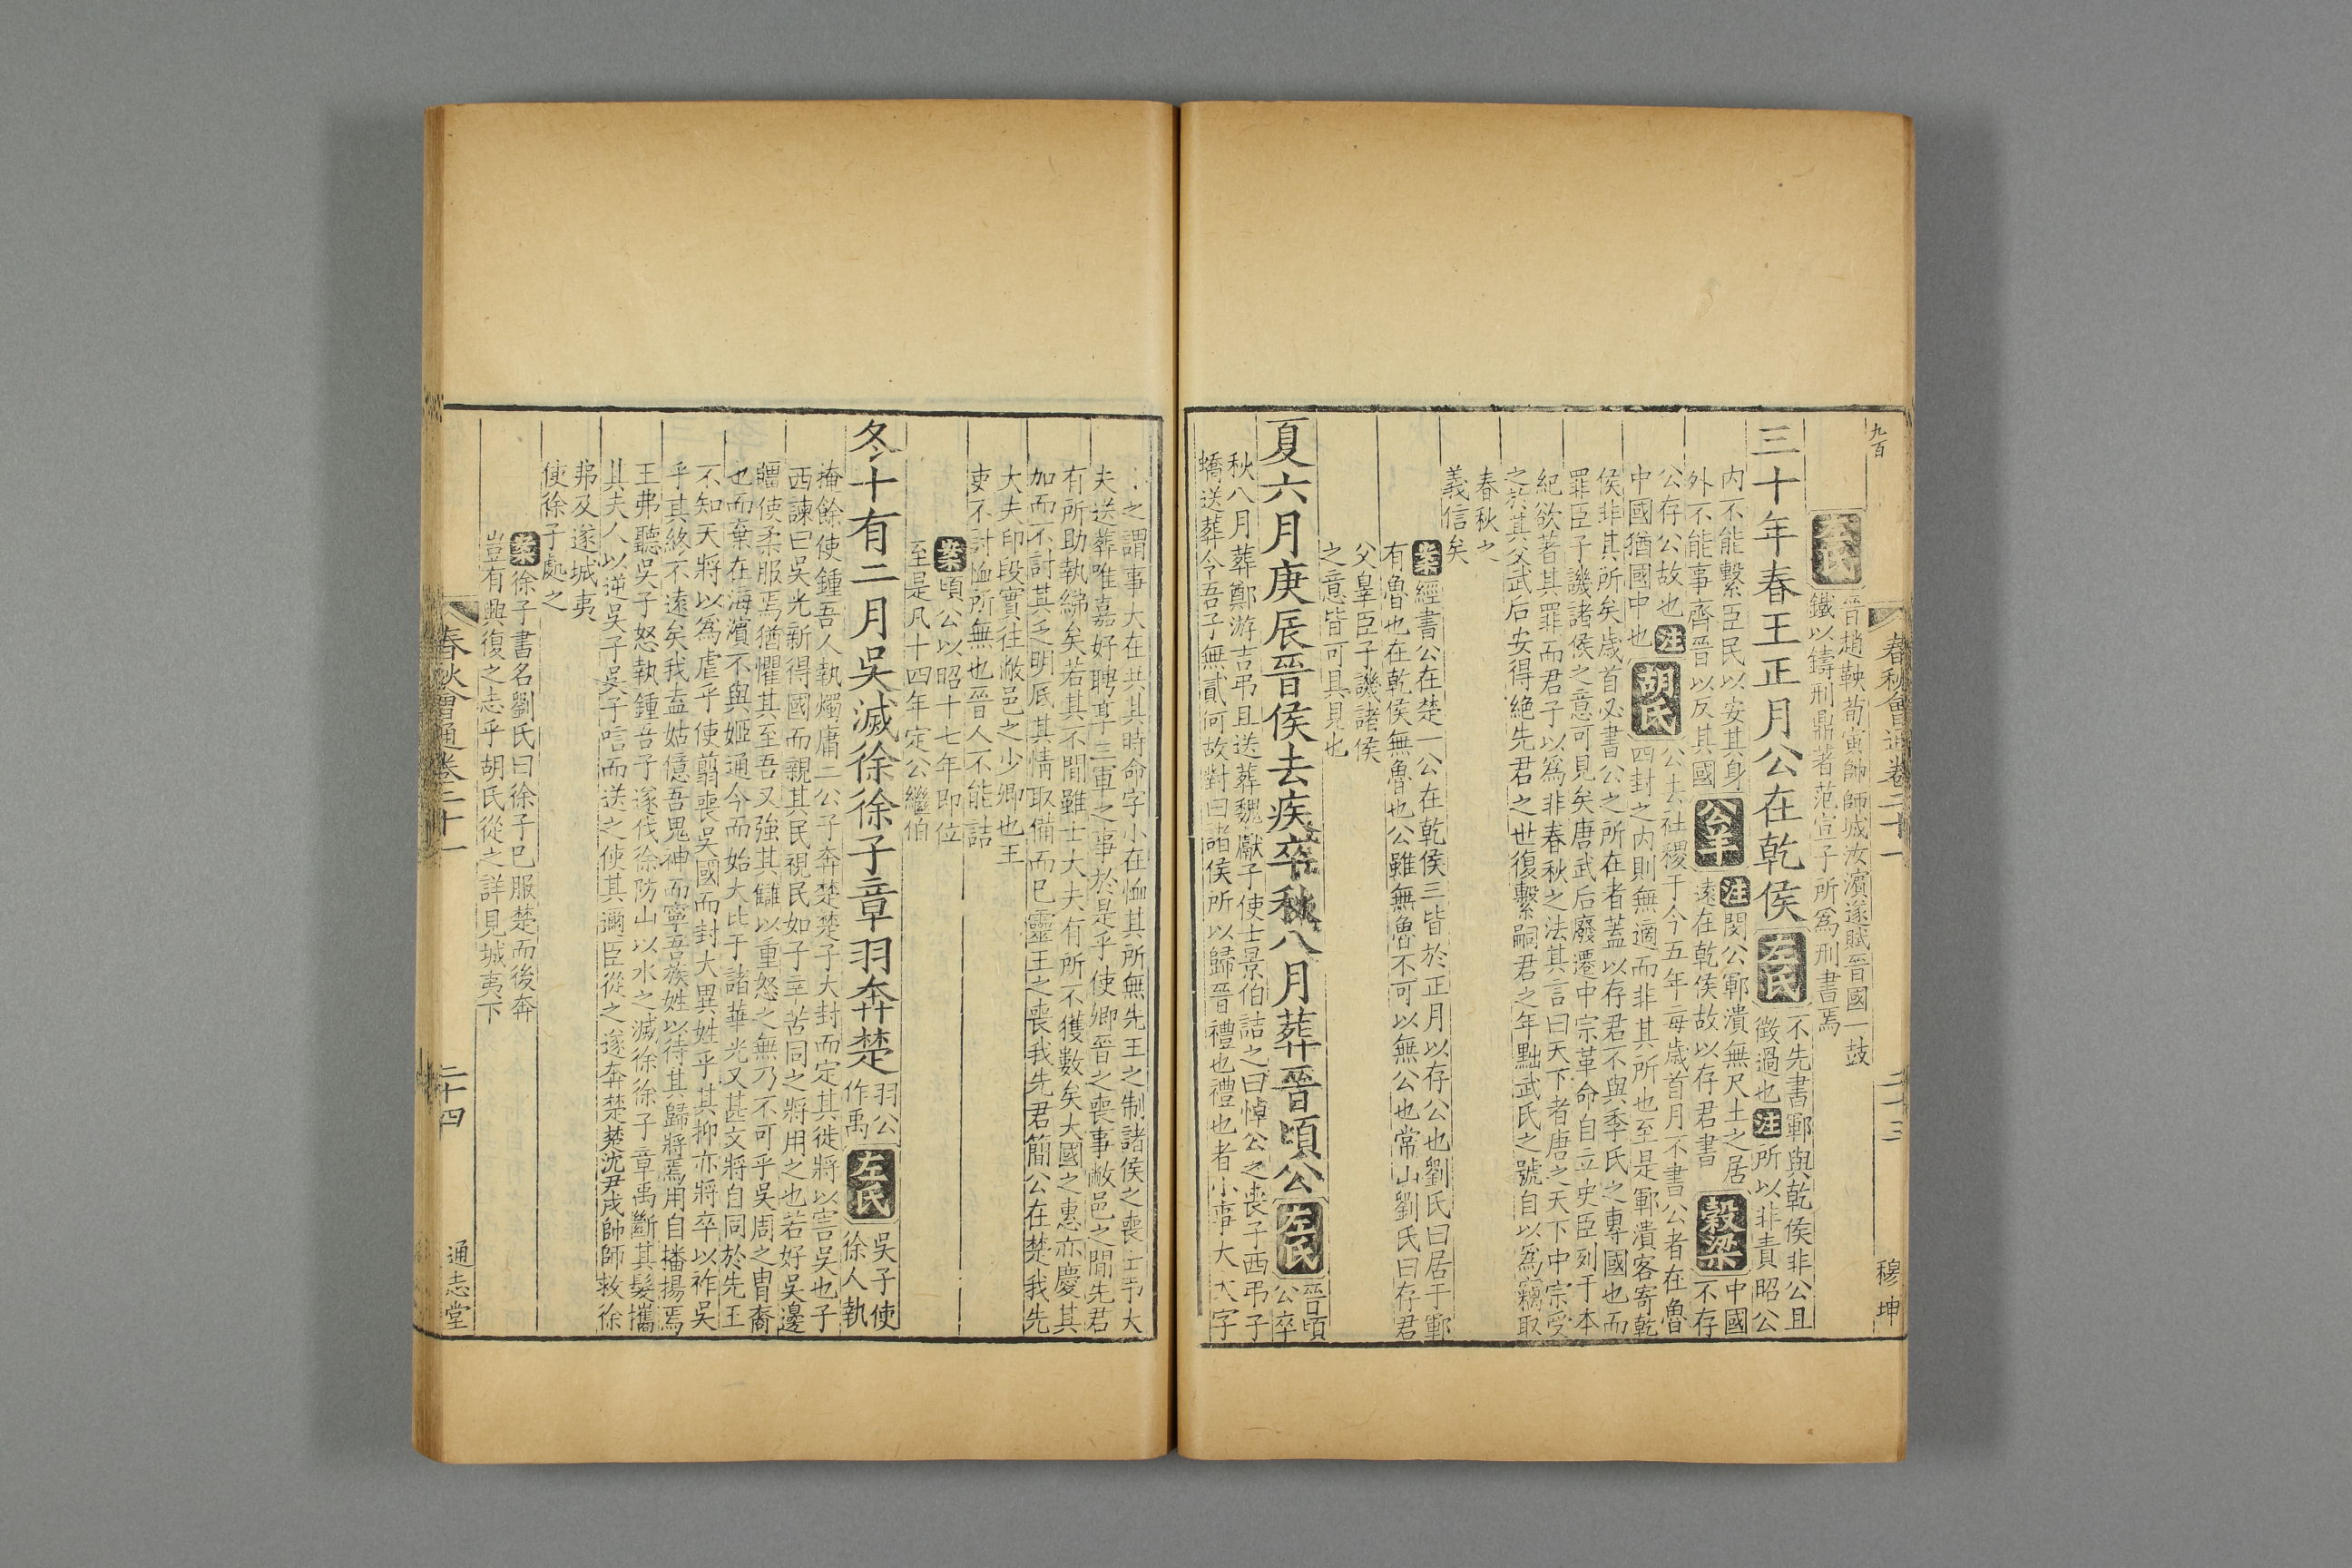 九百
春秋會通卷二十一
二十三
穆坤
左氏
晉趙鞅荀寅帥師城汝濱遂賦晉國一鼓
鐵以鑄刑鼎著范宣子所爲刑書焉
三十年春王正月公在乾侯
左氏
不先書鄆與乾侯非公且
徵過也注所以非責昭公
內不能繫臣民以安其身
外不能事齊晉以反其國
公羊
注閔公鄆潰無尺土之居
遠在乾侯故以存君書
穀梁
中國
不存
公存公故也注
中國猶國中也
胡氏
公去社稷于今五年每歲首月不書公者在魯
四封之內則無適而非其所也至是鄆潰客寄乾
侯非其所矣歲首必書公之所在者蓋以存君不與季氏之專國也而
罪臣子譏諸侯之意可見矣唐武后廢遷中宗革命自立史臣列于本
紀欲著其罪而君子以爲非春秋之法其言曰天下者唐之天下中宗受
之於其父武后安得絶先君之世復繫嗣君之年黜武氏之號自以爲竊取
春秋之
義信矣
案經書公在楚一公在乾侯三皆於正月以存公也劉氏曰居于鄆
有魯也在乾侯無魯也公雖無魯不可以無公也常山劉氏曰存君
父辠臣子譏諸侯
之意皆可具見也
夏六月庚辰晉侯去疾卒秋八月葬晉頃公
左氏
晉頃
公卒
秋八月葬鄭游吉弔且送葬魏獻子使士景伯詰之曰悼公之喪子西弔子
蟜送葬今吾子無貳何故對曰諸侯所以歸晉禮也禮也者小事大大字
小之謂事大在共其時命字小在恤其所無先王之制諸侯之喪士弔大
夫送葬唯嘉好聘享三軍之事於是乎使卿晉之喪事敝邑之閒先君
有所助執綍矣若其不閒雖士大夫有所不獲數矣大國之惠亦慶其
加而不討其乏明厎其情取備而已靈王之喪我先君簡公在楚我先
大夫印段實往敝邑之少卿也王
吏不討恤所無也晉人不能詰
案頃公以昭十七年即位
至是凡十四年定公繼伯
冬十有二月吳滅徐徐子章羽奔楚
羽公
作禹
左氏
吳子使
徐人執
掩餘使鍾吾人執燭庸二公子奔楚楚子大封而定其徙將以害吳也子
西諫曰吳光新得國而親其民視民如子辛苦同之將用之也若好吳邊
疆使柔服焉猶懼其至吾又強其讎以重怒之無乃不可乎吳周之冑裔
也而棄在海濱不與姬通今而始大比于諸華光又甚文將自同於先王
不知天將以爲虐乎使翦喪吳國而封大異姓乎其抑亦將卒以祚吳
乎其終不遠矣我盍姑億吾鬼神而寧吾族姓以待其歸將焉用自播揚焉
王弗聽吳子怒執鍾吾子遂伐徐防山以水之滅徐徐子章禹斷其髮攜
其夫人以逆吳子吳子唁而送之使其邇臣從之遂奔楚楚沈尹戌帥師救徐
弗及遂城夷
使徐子處之
案徐子書名劉氏曰徐子已服楚而後奔
豈有興復之志乎胡氏從之詳見城夷下
春秋會通卷二十一
二十四
通志堂